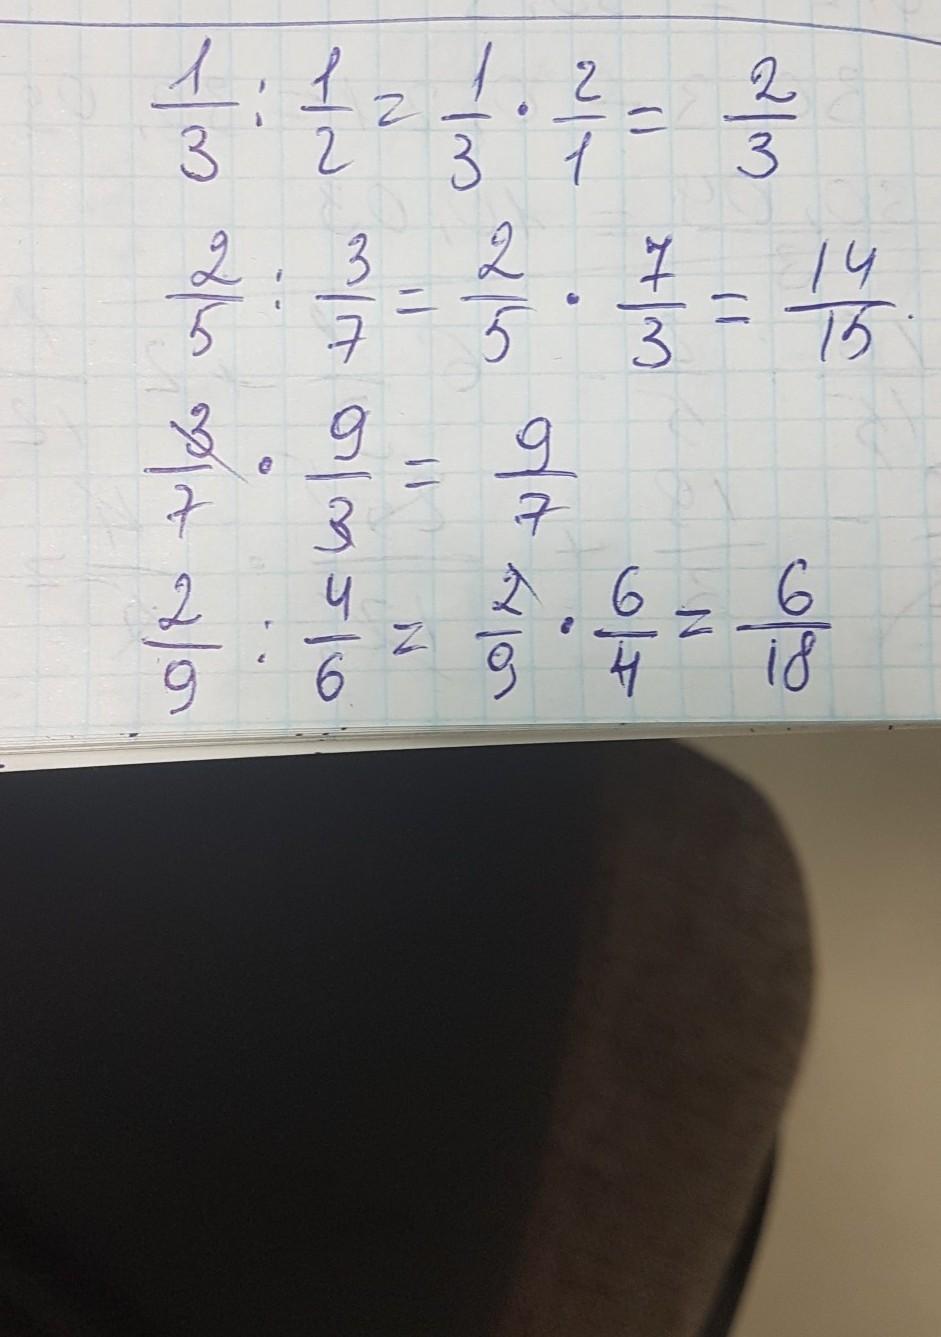 1/3 : 1/2 = 1/3 · 2/1 = 2/3
2/5 : 3/7 = 2/5 · 7/3 = 14/15.
3/7 · 9/3 = 9/7
2/9 : 4/6 = 2/9 · 6/4 = 6/18